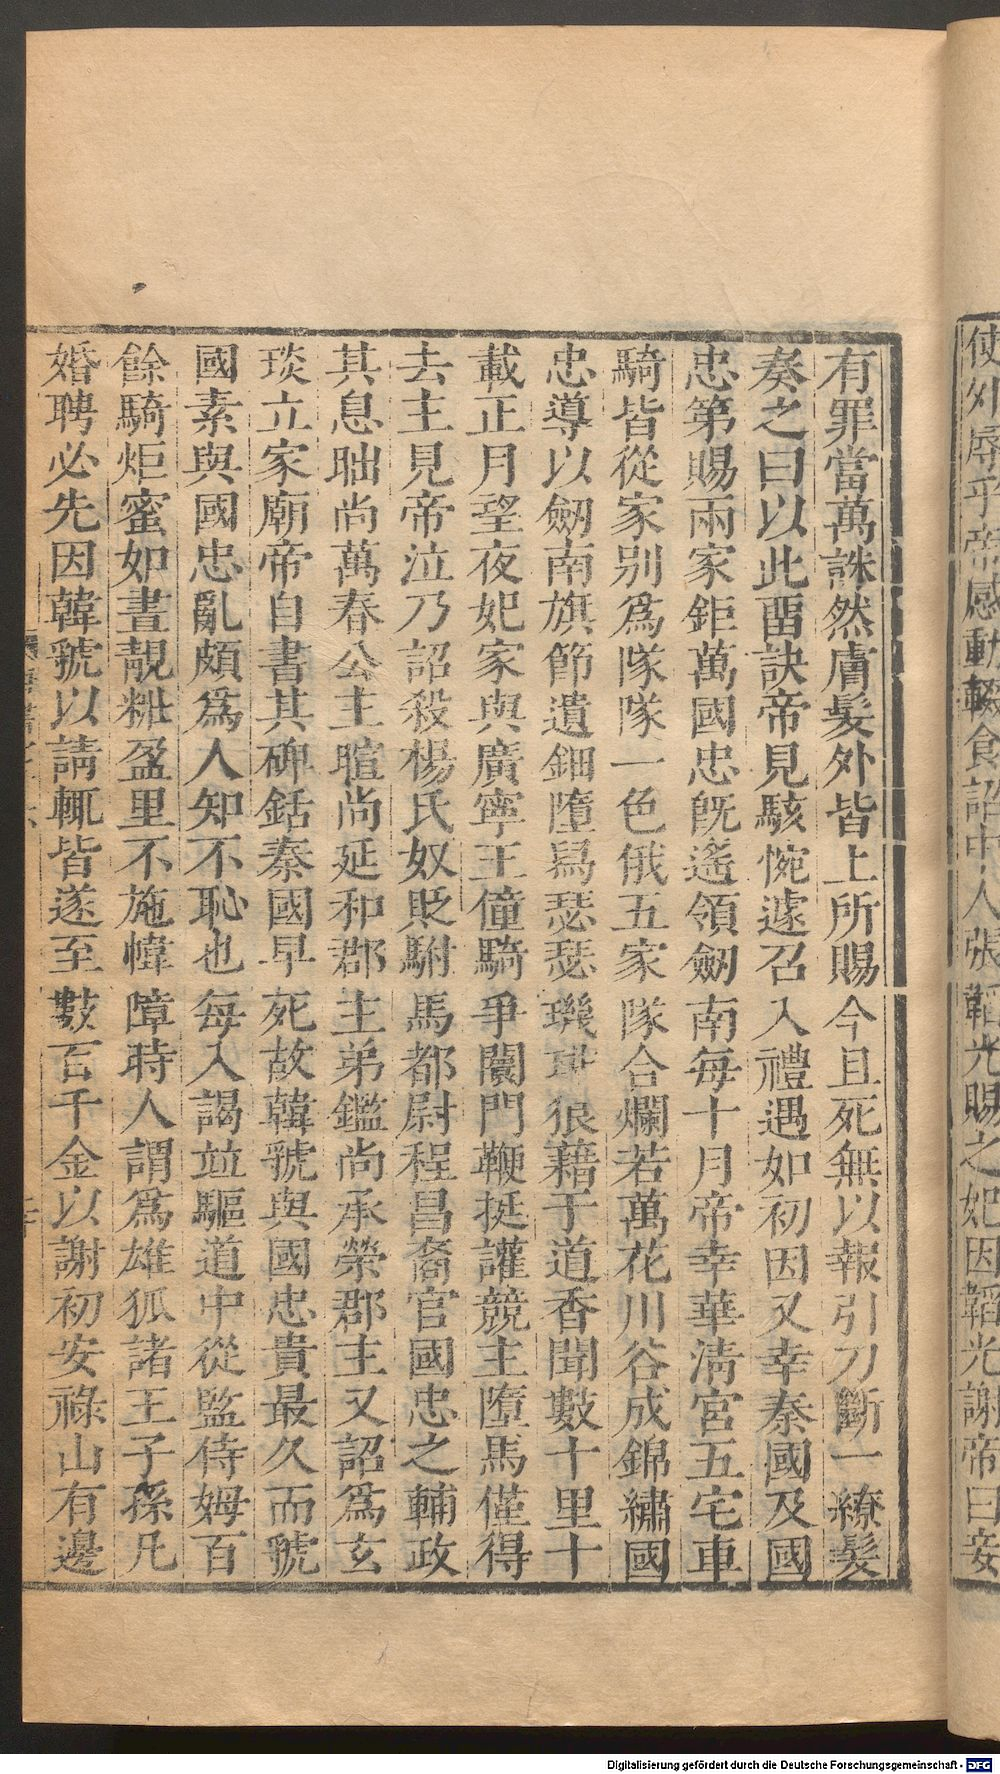 使外辱乎帝感動輟食詔中人張韜光賜之妃因韜光謝帝曰妾
有罪當萬誅然膚髮外皆上所賜今且死無以報引刀斷一繚髮
奏之曰以此留訣帝見駭惋遽召入禮遇如初因又幸秦國及國
忠第賜兩家鉅萬國忠既遙領劒南每十月帝幸華清宮五宅車
騎皆從家别爲隊隊一色俄五家隊合爛若萬花川谷成錦繡國
忠導以劒南旗節遺鈿墮舄瑟瑟璣琲狼藉于道香聞數十里十
載正月望夜妃家與廣寧王僮騎爭闤門鞭挺讙競主墮馬僅得
去主見帝泣乃詔殺楊氏奴貶駙馬都尉程昌裔官國忠之輔政
其息昢尚萬春公主暄尚延和郡主弟鑑尚承榮郡主又詔爲玄
琰立家廟帝自書其碑銛秦國早死故韓虢與國忠貴最久而虢
國素與國忠亂頗爲人知不恥也每入謁並驅道中從監侍姆百
餘騎炬蜜如晝靚粧盈里不施幃障時人謂爲雄狐諸王子孫凡
婚聘必先因韓虢以請輒皆遂至數百千金以謝初安祿山有邊
Digitalisierung gefördert durch die Deutsche Forschungsgemeinschaft - DFG